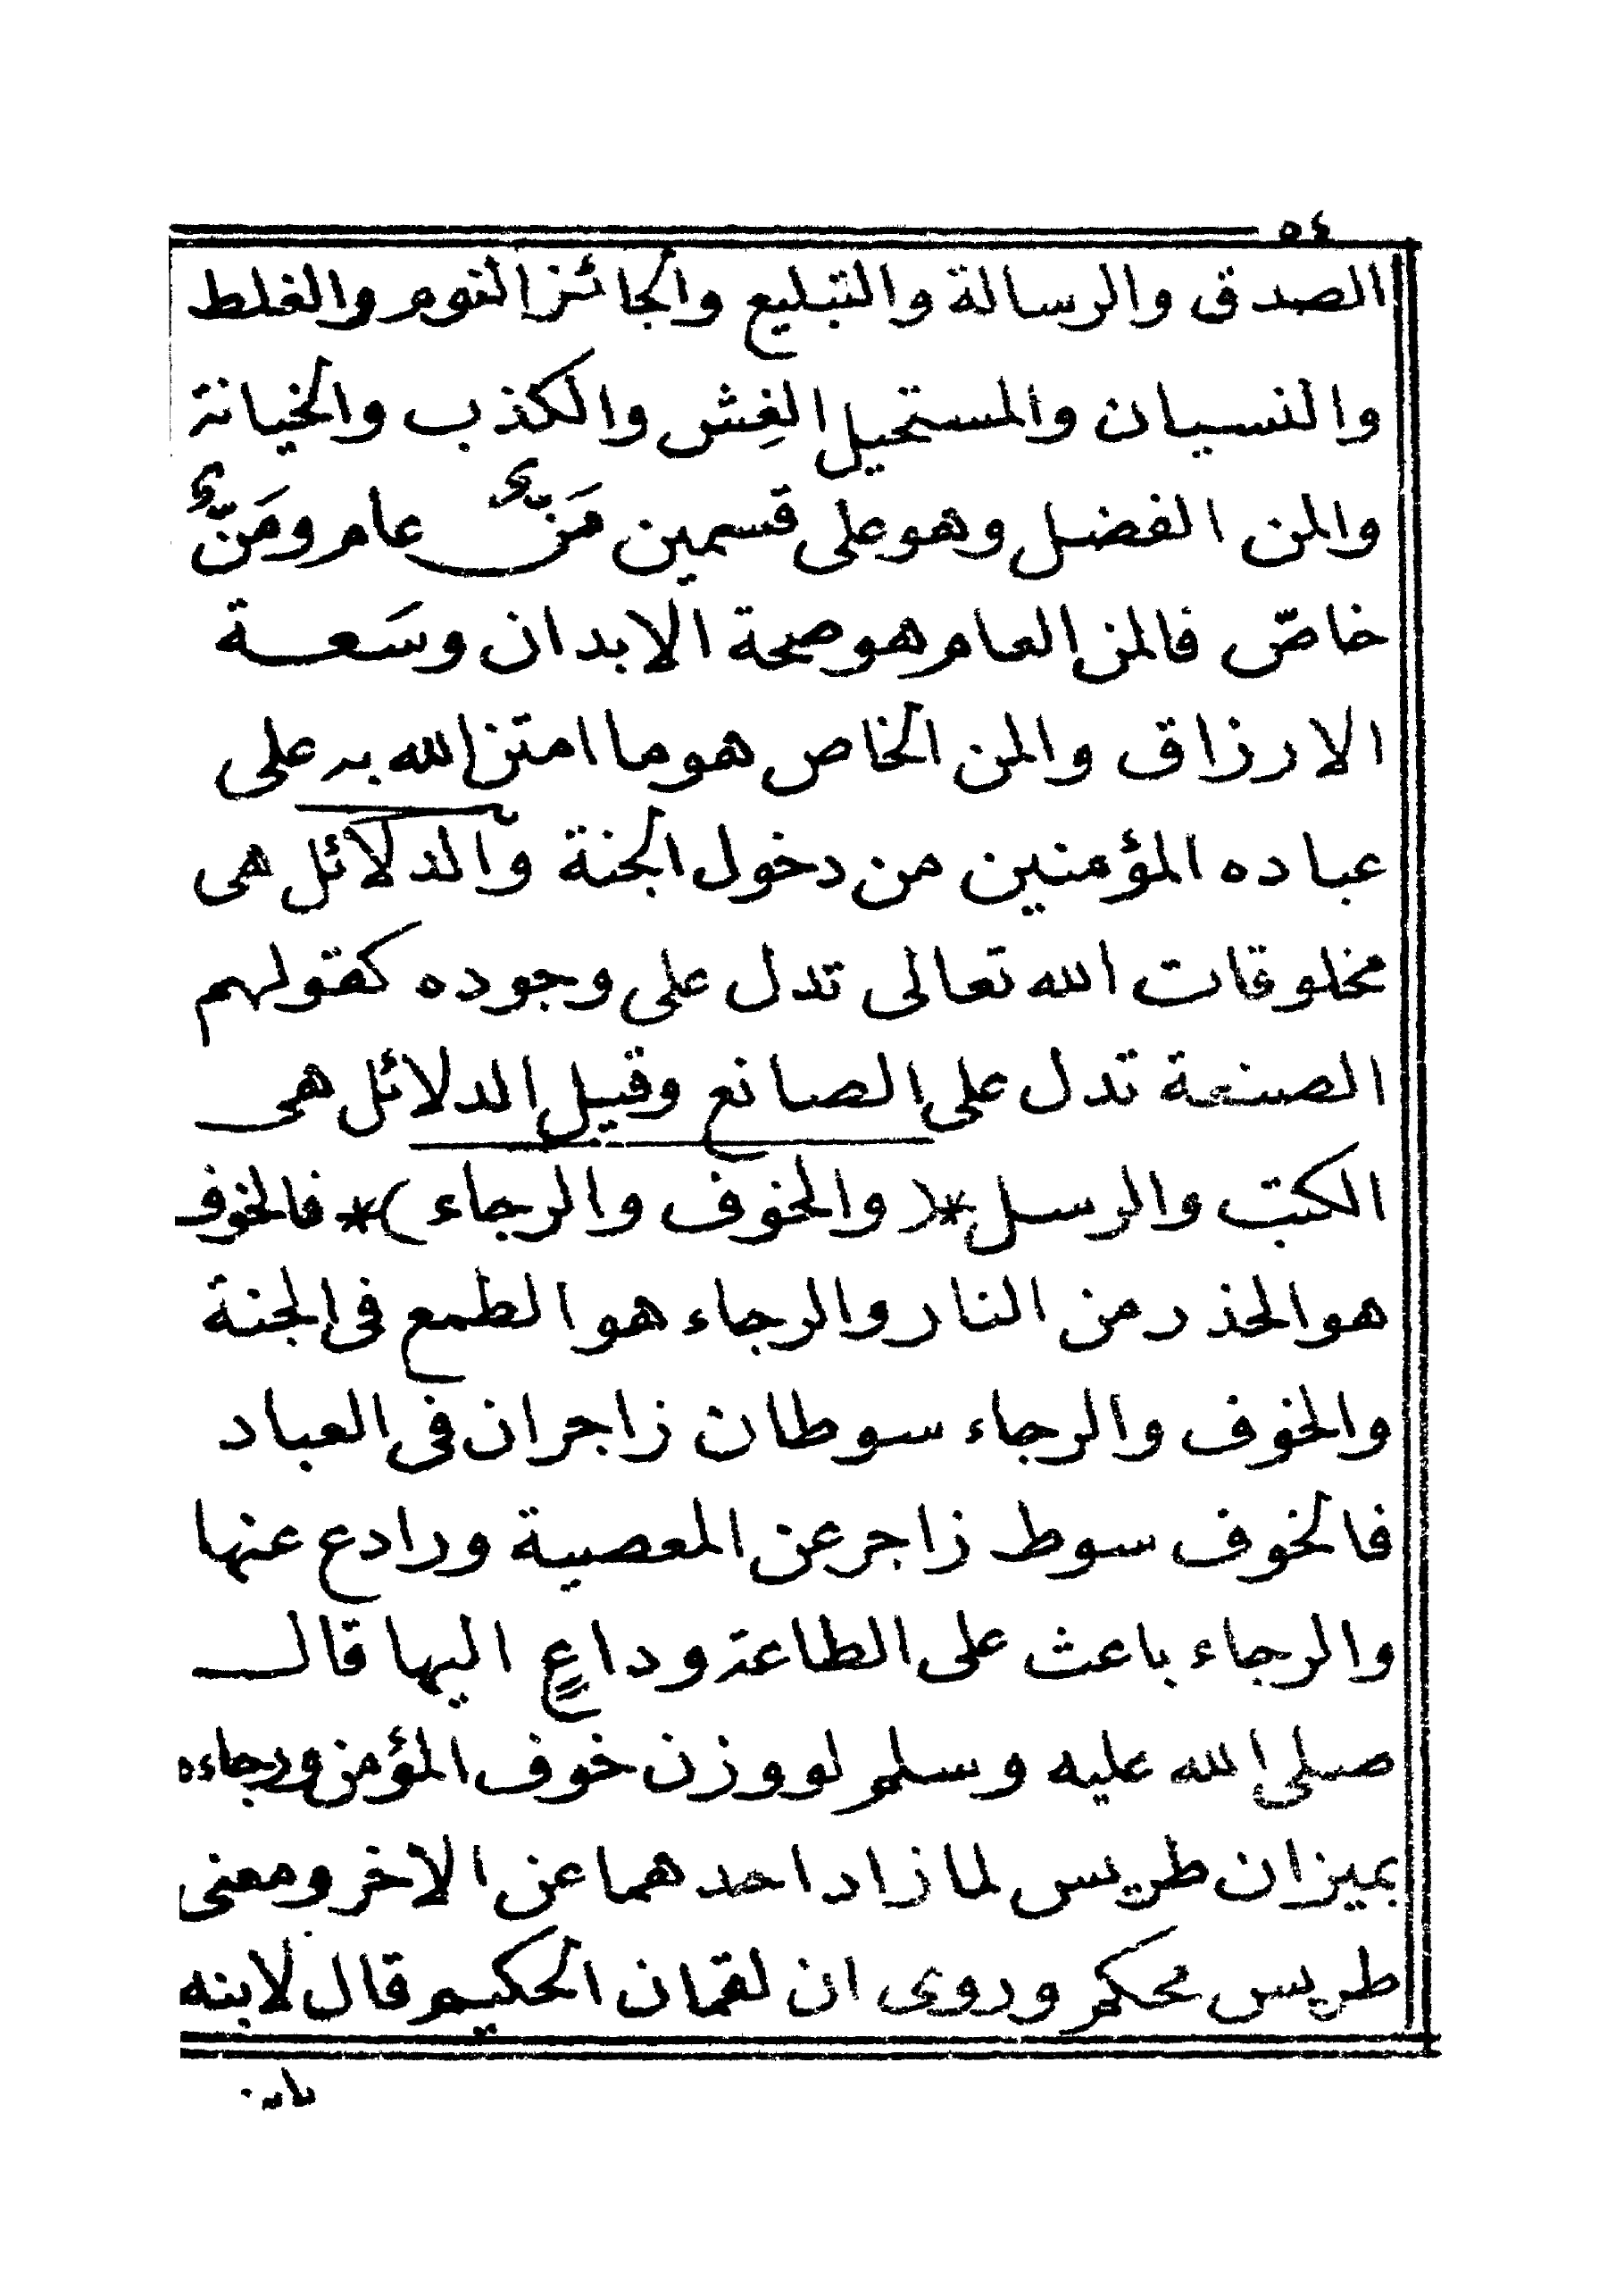 ٥٤
الصدق والرسالة والتبليغ والجائز النوم والغلط
والنسيان والمستحيل الغِش والكذب والخيانة
والمن الفضل وهو على قسمين مَنٌّ عام ومَنٌّ
خاصّ فالمن العام هو صحة الابدان وسَعة
الارزاق والمن الخاص هو ما امتن الله به على
عباده المؤمنين من دخول الجنة والدلائل هى
مخلوقات الله تعالى تدل على وجوده كقولهم
الصنعة تدل على الصانع وقيل الدلائل هى
الكتب والرسل *( والخوف والرجاء )* فالخوف
هو الحذر من النار والرجاء هو الطمع فى الجنة
والخوف والرجاء سوطان زاجران فى العباد
فالخوف سوط زاجر عن المعصية ورادع عنها
والرجاء باعث على الطاعة وداعٍ اليها قال
صلى الله عليه وسلم لو وزن خوف المؤمن ورجاءه
بميزان طريس لما زاد احدهما عن الاخر ومعنى
طريس محكم وروى ان لقمان الحكيم قال لابنه